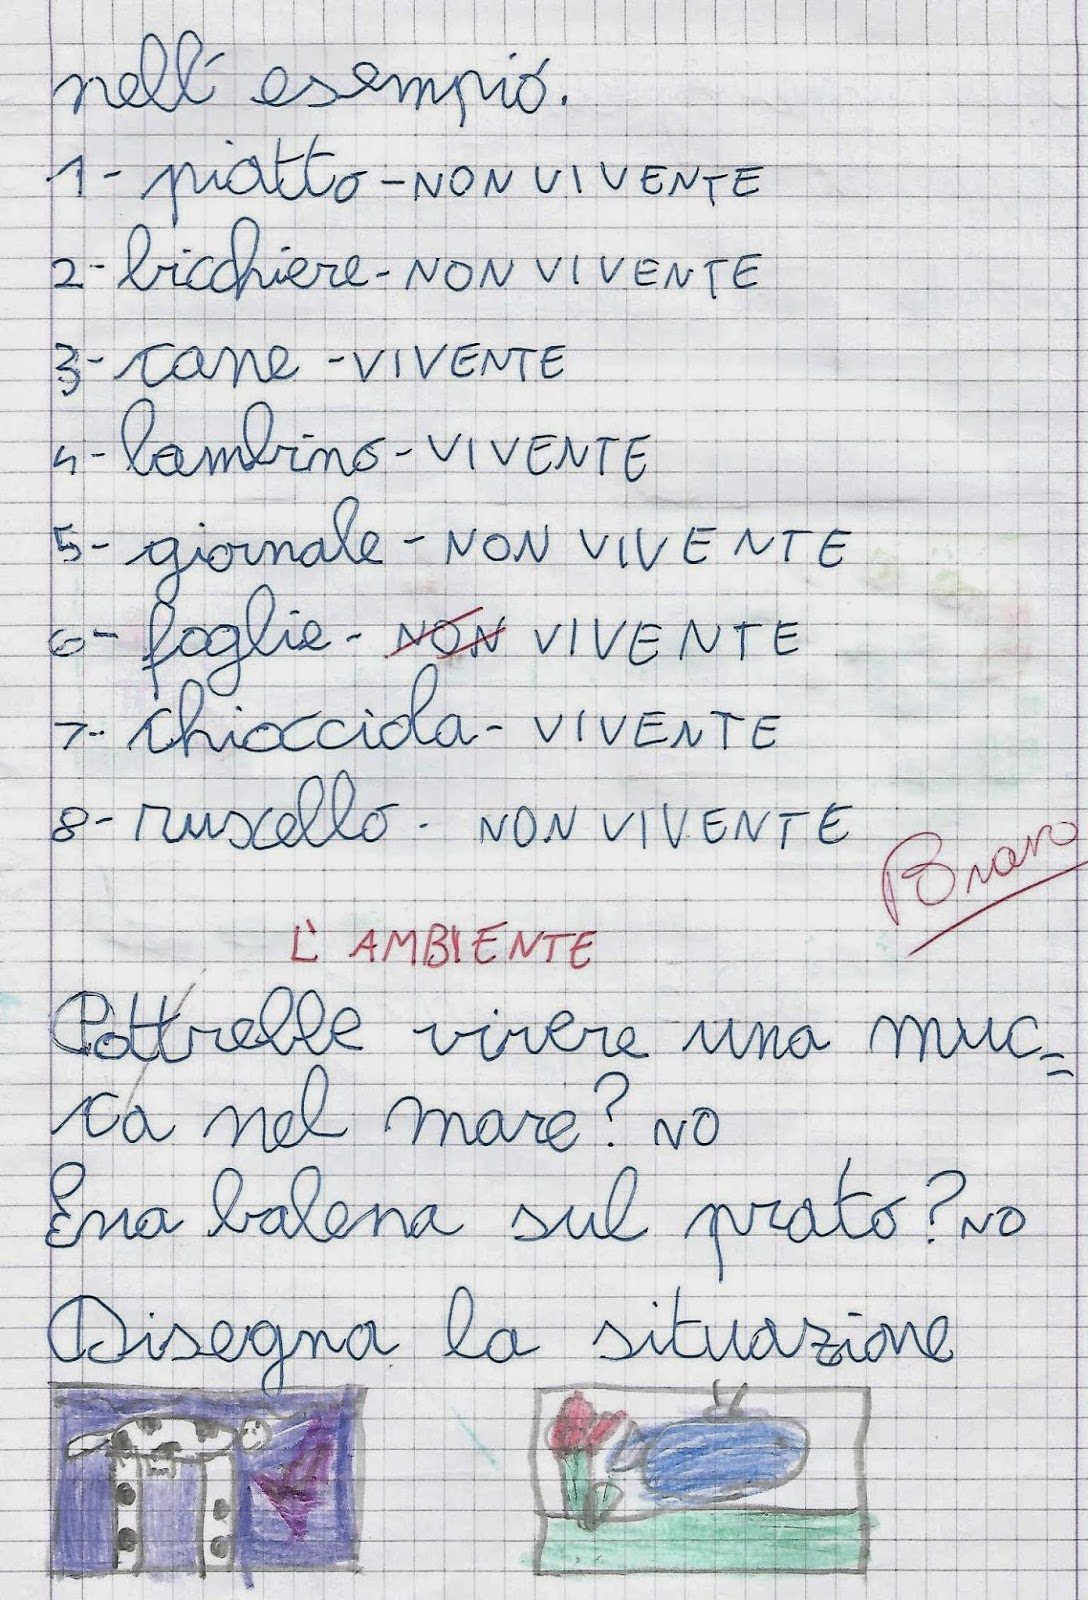 nell' esempio.
1- piatto - NON VIVENTE
2- bicchiere - NON VIVENTE
3- cane - VIVENTE
4- bambino - VIVENTE
5- giornale - NON VIVENTE
6- foglie - NON VIVENTE
7- chiocciola - VIVENTE
8- ruscello - NON VIVENTE
Bravo
L'AMBIENTE
Pottrebbe vivere una muc=
ca nel mare? NO
Una balena sul prato? NO
Disegna la situazione